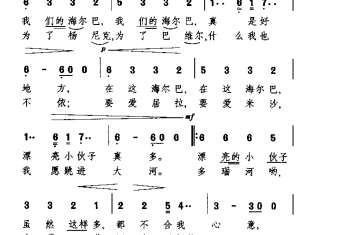 6 3 3 2 | 6 3 3 2 | 6 3 3 2 | 1·· 6 1 7
我 们的 海尔 巴, 我 们的 海尔 巴, 真 是 好
为 了 杨 尼克, 为 了 巴 维尔, 什么 我 也
p
6 - 6 0 0 | 6 3 3 2 | 6 3 3 2 | 6 3 3 2
地 方, 在 这 海尔 巴, 在 这 海尔 巴,
不 依; 要 爱 居 拉, 要 爱 米 沙,
mf
1·· 6 1 7·· | 6 - 6 0 0 ‖: 6 6 6 5
漂 亮 小 伙子 真 多。 漂 亮的 小 伙子
我 愿 跳进 大 河。 多 瑙 河 哟,
3 3 3 2 | 1 2 2 5 4 | 3 - 3 0
虽 然 这样 多, 都 不 合我 心 意,